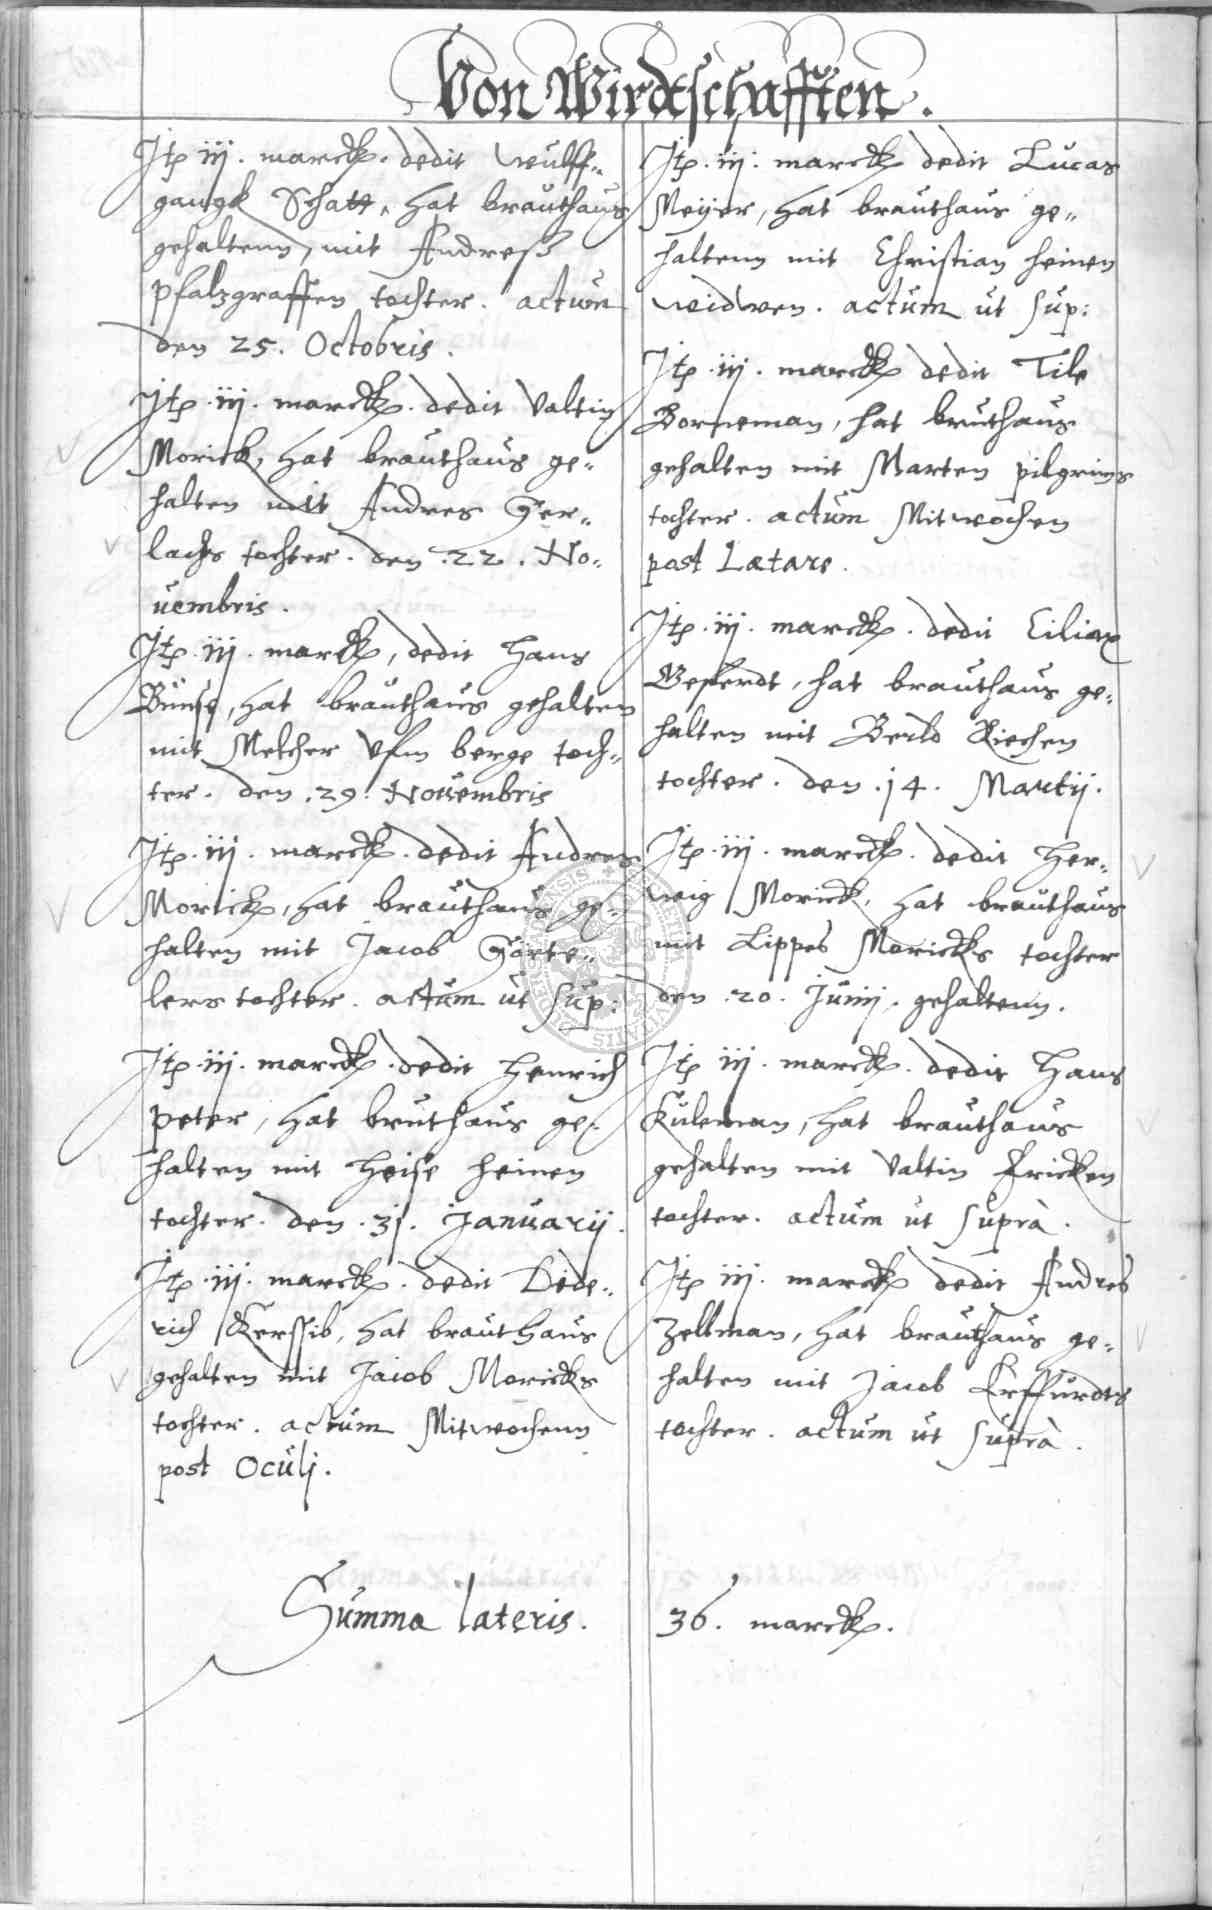 Von Wirdtschafften.
Jtp iij. marck. dedit Wulff„
gangk Schatt, hat brauthaus
gehaltenn, mit Andreß
pfalzgraffen tochter. actum
den 25. Octobris.
Jtp. iij. marck. dedit Valtin
Morick, hat brauthaus ge„
halten mit Andres Ger„
lachs tochter. den .22. No„
uembris.
Jtp. iij. marck, dedit Hans
Bünse, hat brauthaus gehalten
mit Melcher Vfm berge toch„
ter. den .29. Nouembris
Jtp. iij. marck. dedit Andres
Morick, hat brauthaus ge„
halten mit Jacob Görte„
lers tochter. actum ut sup:
Jtp. iij. marck. dedit Henrich
peter, hat bruthaus ge„
halten mit Heise Heinen
tochter. den .31. Januarij.
Jtp. iij. marck. dedit Dide„
rich Kerssib, hat brauthaus
gehalten mit Jacob Moricks
tochter. actum Mitwochenn
post Oculj.
Jtp. iij. marck dedit Lucas
Meyer, hat brauthaus ge„
haltenn mit Christian Heinen
widwen. actum ut sup:
Jtp. iij. marck dedit Tile
Borneman, hat bruthaus
gehalten mit Marten pilgrims
tochter. actum Mitwochen
post Lætare.
Jtp. iij. marck. dedit Ciliax
hat brauthaus ge„
halten mit
tochter. den .14. Martij.
Jtp. iij. marck. dedit Her„
wig Morick, hat brauthaus
mit Lippes Moricks tochter
den .20. Junij. gehaltenn.
Jtp iij. marck. dedit Hans
Kuleman, hat brauthaus
gehalten mit Valtin Fricken
tochter. actum ut suprà.
Jtp iij. marck dedit Andres
Zellman, hat brauthaus ge„
halten mit Jacob Erffurdts
tochter. actum ut suprà.
Summa lateris. 36. marck.